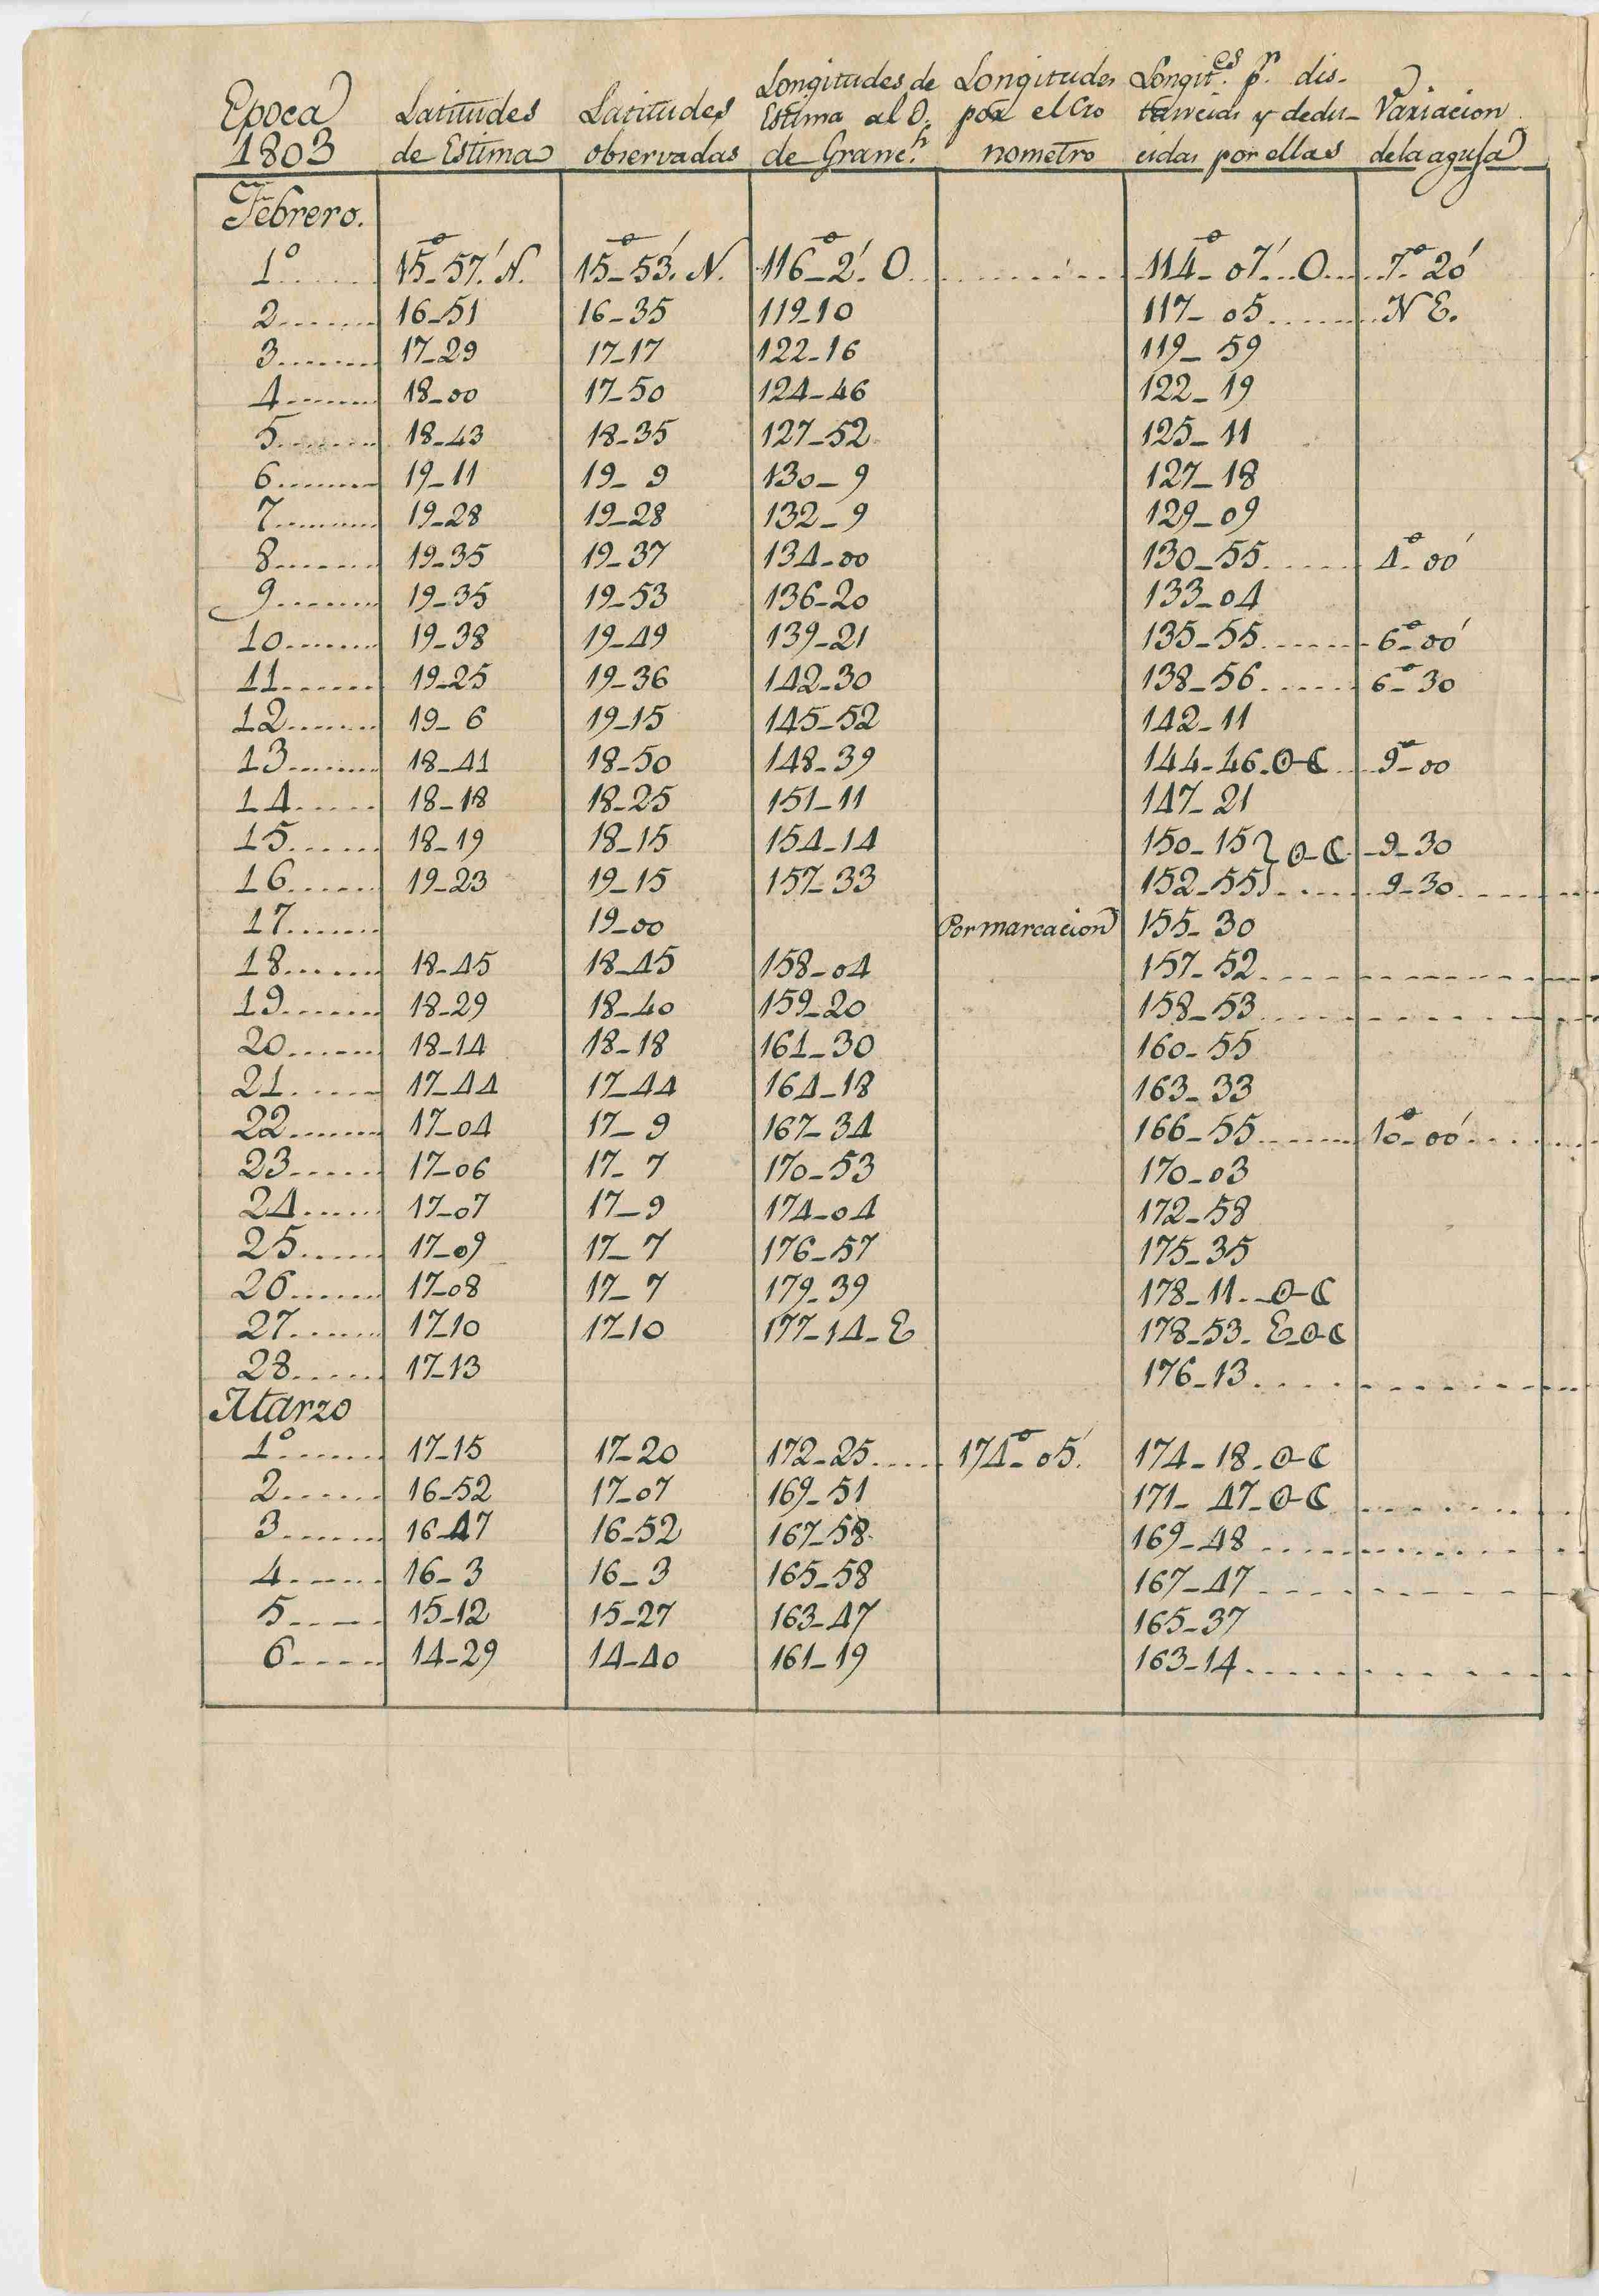 Epoca 1803 | Latitudes de Estima | Latitudes observadas | Longitudes de Estima al O. de Granc.h | Longitudes por el Cronometro | Longit.es p.r distancias y deducidas por ellas | Variacion de la aguja
Febrero.
1º...... | 15º-57.' N. | 15º-53.' N. | 116º-2.' O. | ........ | 114º-07'...O.... | 7º 20'
2....... | 16-51 | 16-35 | 119-10 | | 117-05........ | N E.
3....... | 17-29 | 17-17 | 122-16 | | 119-59
4....... | 18-00 | 17-50 | 124-46 | | 122-19
5....... | 18-43 | 18-35 | 127-52 | | 125-11
6....... | 19-11 | 19-9 | 130-9 | | 127-18
7....... | 19-28 | 19-28 | 132-9 | | 129-09
8....... | 19-35 | 19-37 | 134-00 | | 130-55...... | 4º-00'
9....... | 19-35 | 19-53 | 136-20 | | 133-04
10....... | 19-38 | 19-49 | 139-21 | | 135-55...... | 6º-00'
11...... | 19-25 | 19-36 | 142-30 | | 138-56..... | 6º-30
12....... | 19-6 | 19-15 | 145-52 | | 142-11
13....... | 18-41 | 18-50 | 148-39 | | 144-46.☉-☾... | 9º-00
14..... | 18-18 | 18-25 | 151-11 | | 147-21
15...... | 18-19 | 18-15 | 154-14 | | 150-15} ☉-☾. | 9-30
16...... | 19-23 | 19-15 | 157-33 | | 152-55}..... | 9-30........
17....... | | 19-00 | | Por marcacion | 155-30
18....... | 18-45 | 18-45 | 158-04 | | 157-52....
19....... | 18-29 | 18-40 | 159-20 | | 158-53....
20...... | 18-14 | 18-18 | 161-30 | | 160-55
21..... | 17-44 | 17-44 | 164-18 | | 163-33
22....... | 17-04 | 17-9 | 167-34 | | 166-55....... | 10º-00'......
23...... | 17-06 | 17-7 | 170-53 | | 170-03
24..... | 17-07 | 17-9 | 174-04 | | 172-58
25...... | 17-09 | 17-7 | 176-57 | | 175-35
26....... | 17-08 | 17-7 | 179-39 | | 178-11.-☉-☾
27...... | 17-10 | 17-10 | 177-14-E | | 178-53-E-☉-☾
28..... | 17-13 | | | | 176-13....
Marzo
1º...... | 17-15 | 17-20 | 172-25..... | 174º-05'. | 174-18-☉-☾
2...... | 16-52 | 17-07 | 169-51 | | 171-47-☉-☾
3...... | 16-47 | 16-52 | 167-58 | | 169-48.....
4...... | 16-3 | 16-3 | 165-58 | | 167-47....
5..... | 15-12 | 15-27 | 163-47 | | 165-37
6..... | 14-29 | 14-40 | 161-19 | | 163-14.....